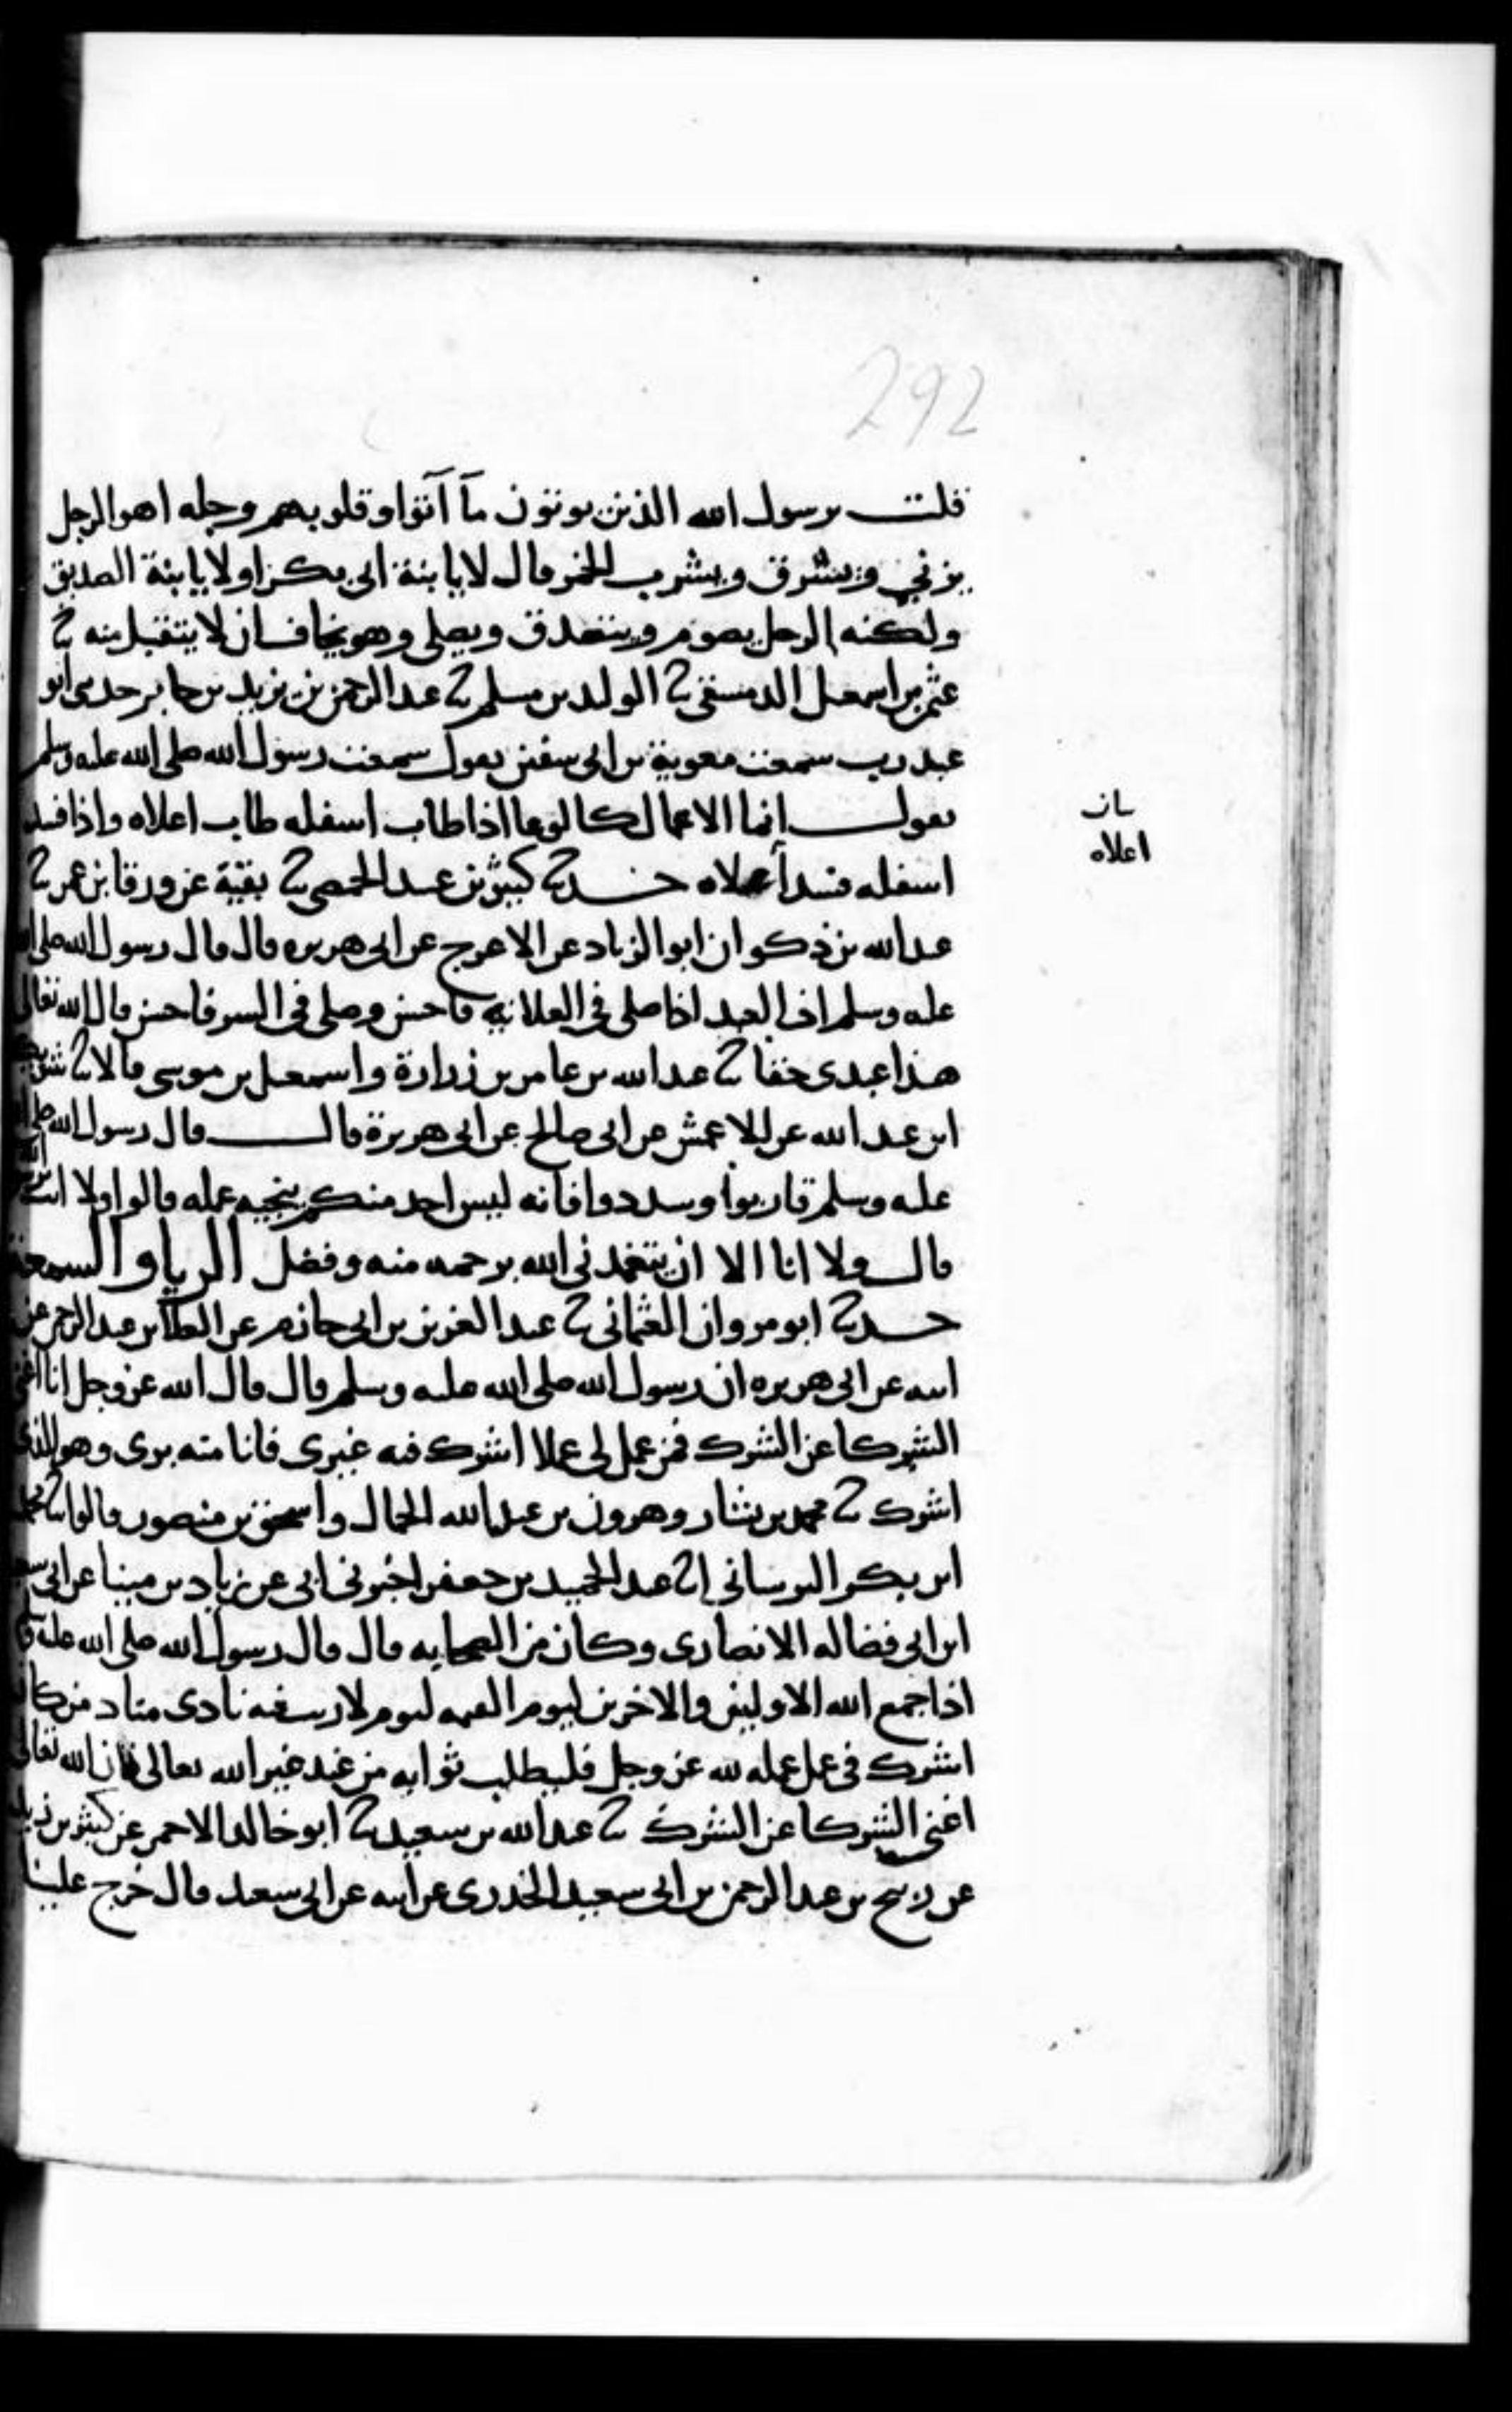 292
قلت يرسول الله الذين يوتون مآ آتوا وقلوبهم وجله اهو الرجل
يزني ويسرق ويشرب الخمر قال لا يا بنة ابي بكر او لا يا بنة الصديق
ولكنه الرجل يصوم ويتصدق ويصلي وهو يخاف ان لا يتقبل منه ثنا
عثمن بن اسمعيل الدمشقي ثنا الوليد بن مسلم ثنا عبد الرحمن بن يزيد بن جابر حدثني ابو
عبد رب سمعت معوية بن ابي سفين يقول سمعت رسول الله صلى الله عليه وسلم
يقول انما الاعمال كالوعا اذا طاب اسفله طاب اعلاه واذا فسد
اسفله فسد أعلاه حدثنا كثير بن عبيد الحمصي ثنا بقية عن ورقا بن عمر ثنا
بيان
اعلاه
عبد الله بن ذكوان ابو الزناد عن الاعرج عن ابي هريره قال قال رسول الله صلى الله
عليه وسلم ان العبد اذا صلى في العلانيه فاحسن وصلى في السر فاحسن قال الله تعالى
هذا عبدي حقا ثنا عبد الله بن عامر بن زرارة واسمعيل بن موسى قالا ثنا شريك
ابن عبد الله عن الاعمش عن ابي صالح عن ابي هريرة قال قال رسول الله صلى الله
عليه وسلم قاربوا وسددوا فانه ليس احد منكم ينجيه عمله قالوا ولا انت
قال ولا انا الا ان يتغمدني الله برحمه منه وفضل الريا والسمعة
حدثنا ابو مروان العثماني ثنا عبد العزيز بن ابي حازم عن العلا بن عبد الرحمن عن
ابيه عن ابي هريره ان رسول الله صلى الله عليه وسلم قال قال الله عز وجل انا اغنى
الشركا عن الشرك فمن عمل لي عملا اشرك فيه غيري فانا منه بري وهو للذي
اشرك ثنا محمد بن بشار وهرون بن عبد الله الحمال واسحق بن منصور قالوا ثنا محمد
ابن بكر البرساني انا عبد الحميد بن جعفر اخبرني ابي عن زياد بن مينا عن ابي سعد
ابن ابي فضاله الانصاري وكان من الصحابه قال قال رسول الله صلى الله عليه وسلم
اذا جمع الله الاولين والاخرين ليوم القيمه ليوم لا ريب فيه نادى مناد من كان
اشرك في عمل عمله لله عز وجل فليطلب ثوابه من عند غير الله تعالى فان الله تعالى
اغنى الشركا عن الشرك ثنا عبد الله بن سعيد ثنا ابو خالد الاحمر عن كثير بن زيد
عن ربيح بن عبد الرحمن بن ابي سعيد الخدري عن ابيه عن ابي سعيد قال خرج علينا